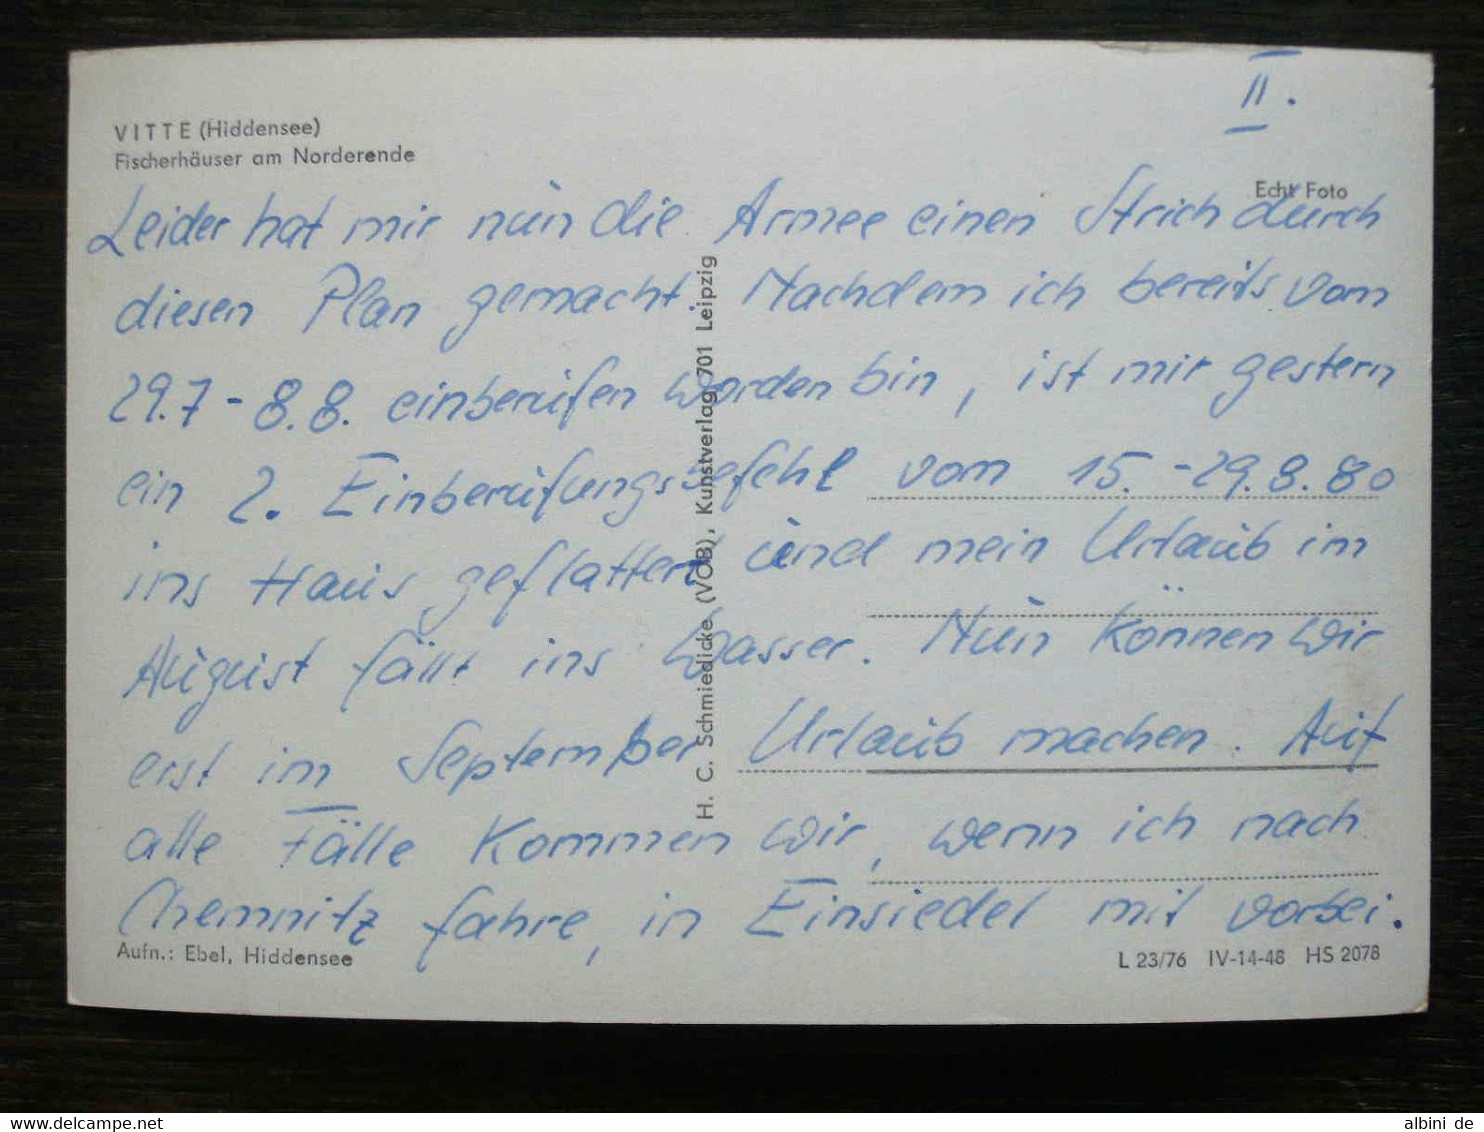 II.
VITTE (Hiddensee)
Fischerhäuser am Norderende
Echt Foto
Leider hat mir nun die Armee einen Strich durch
diesen Plan gemacht. Nachdem ich bereits vom
29.7 - 8.8. einberufen worden bin, ist mir gestern
ein 2. Einberufungsbefehl vom 15. - 29.8.80
ins Haus geflattert und mein Urlaub im
August fällt ins Wasser. Nun können wir
erst im September Urlaub machen. Auf
alle Fälle kommen wir, wenn ich nach
Chemnitz fahre, in Einsiedel mit vorbei.
H. C. Schmiedicke (VOB), Kunstverlag 701 Leipzig
Aufn.: Ebel, Hiddensee
L 23/76 IV-14-48 HS 2078
www.delcampe.net
albini de